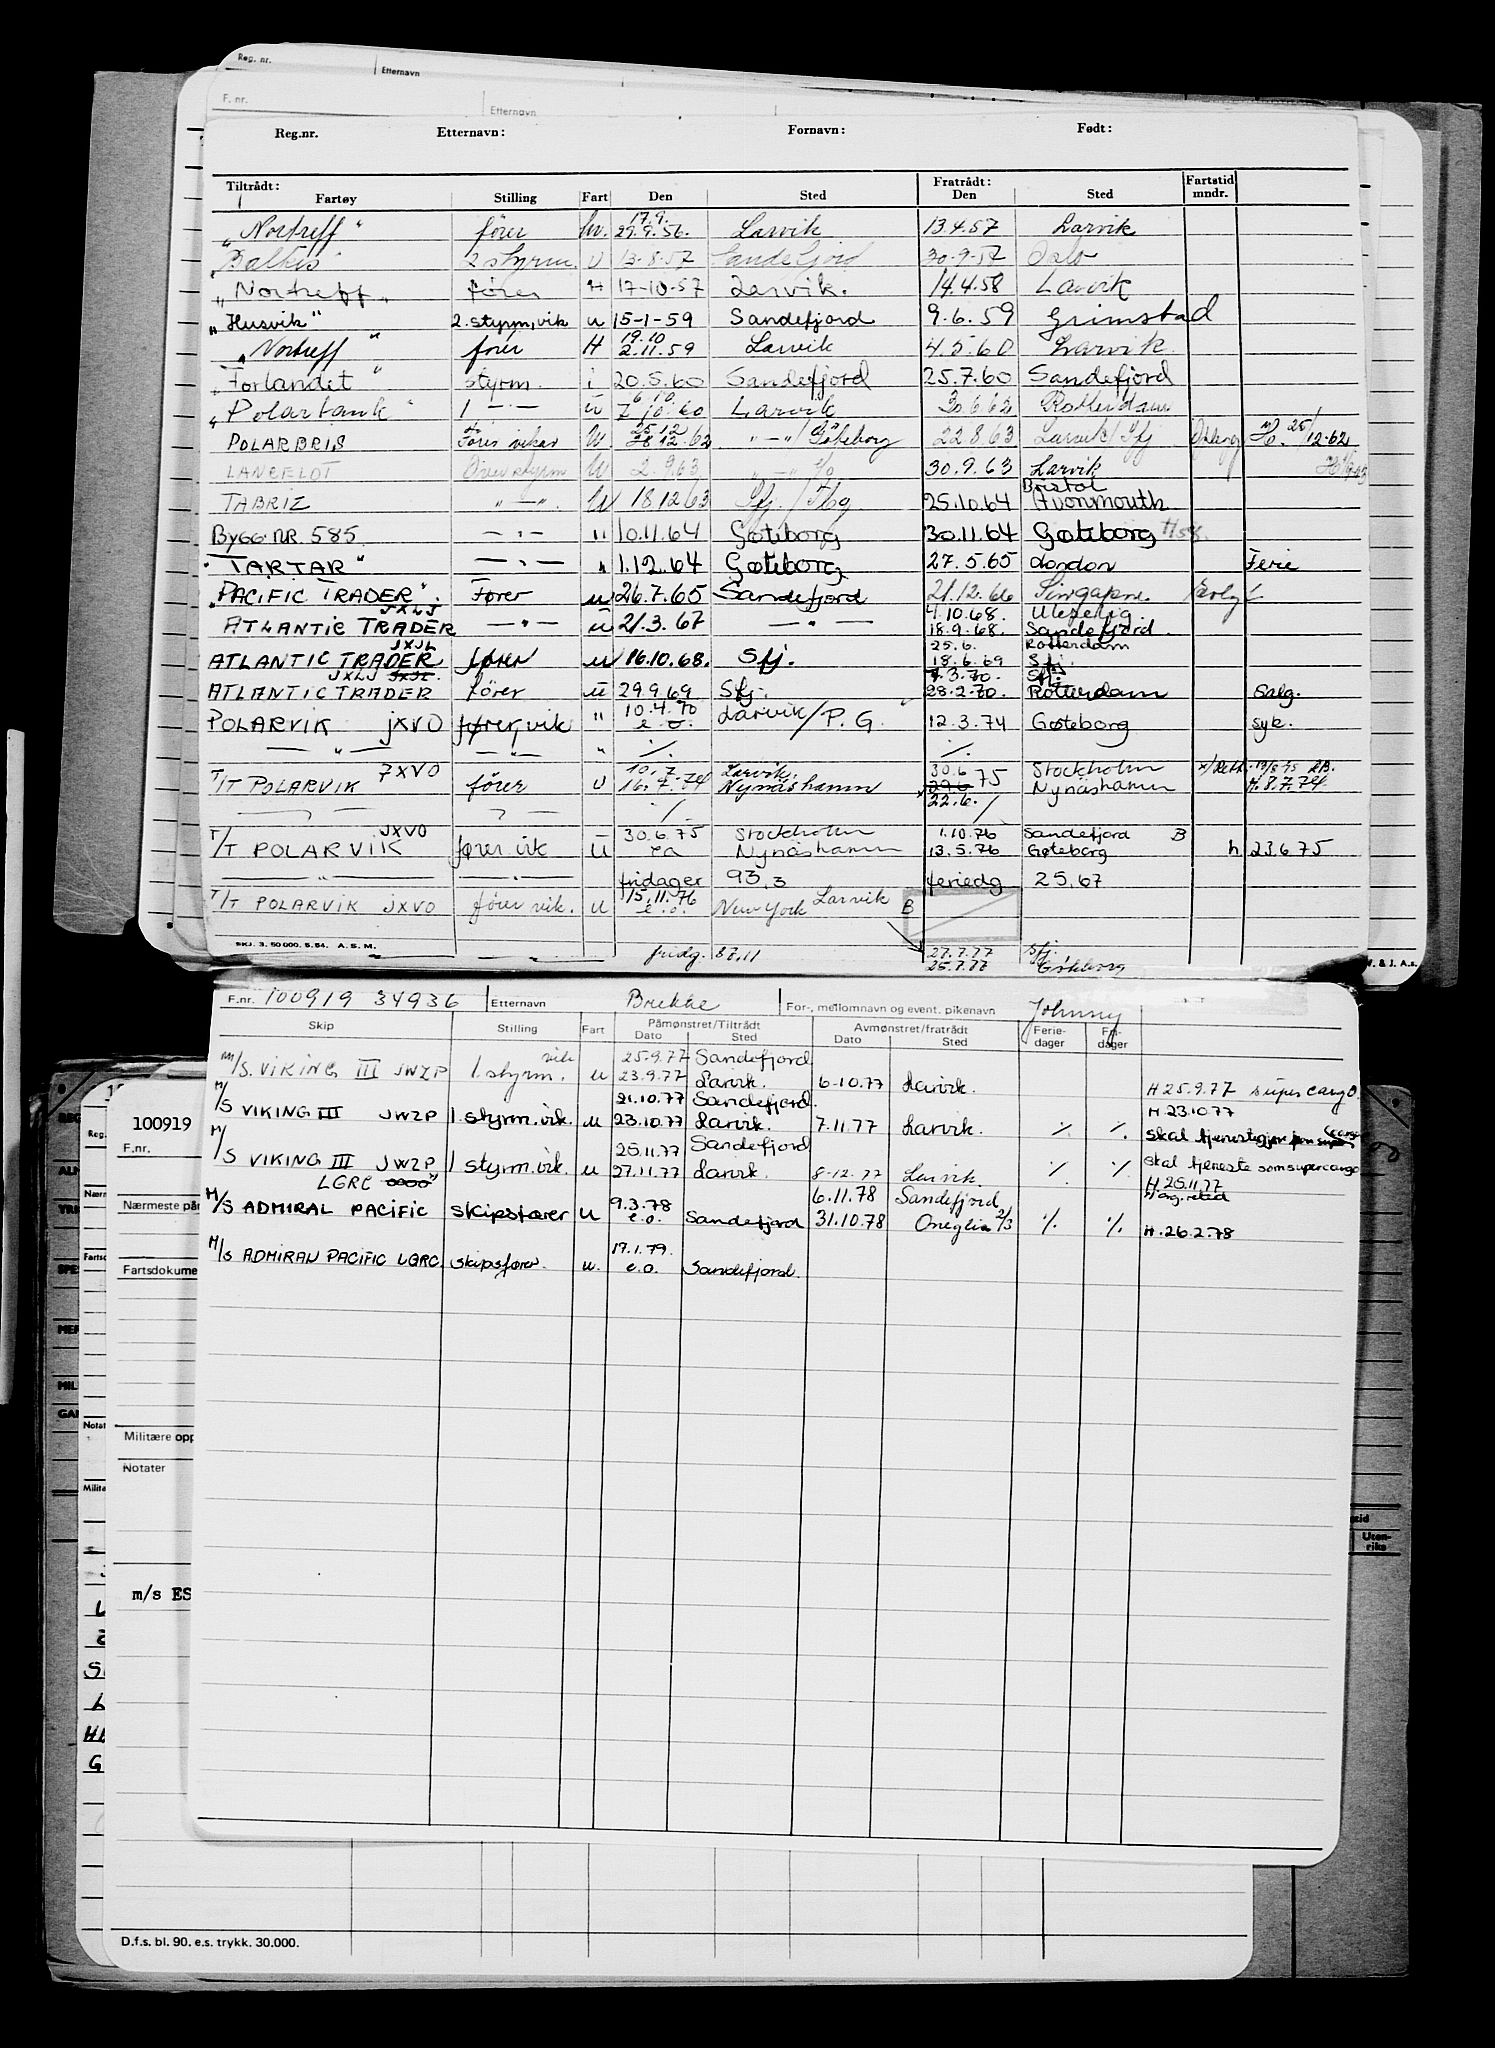 Reg. nr. Etternavn
F. nr. Etternavn
Reg.nr. Etternavn: Fornavn: Født:
Tiltrådt: Fratrådt: Fartstid
Fartøy Stilling Fart Den Sted Den Sted mndr.
17.9.
"Nortreff" fører hv. 29.9.56. Larvik 13.4.57 Larvik
"Balkis" 2 styrm. U 13-8-57 Sandefjord 30-9-57 Oslo
"Nortreff" fører H 17-10-57 Larvik. 14.4.58 Larvik
"Husvik" 2. styrm, vik u 15-1-59 Sandefjord 9.6.59 Grimstad
19.10
"Nortreff" fører H 2.11.59 Larvik 4.5.60 Larvik
"Forlandet" styrm. i 20.5.60 Sandefjord 25.7.60 Sandefjord
6.10
"Polartank" 1 -"- u 7.10.60 Larvik 30.6.62 Rotterdam
25.12
POLARBRIS Fører vikar U 28.12.62 -"-/Göteborg 22.8.63 Larvik/Sfj 25/12-62
LANCELOT Overstyrm U 2.9.63 30.9.63 Larvik
Bristol
TABRIZ "—". U 18.12.63 Sfj./Tbg 25.10.64 Avonmouth
BYGG NR 585 —"— " 10.11.64 Gøteborg 30.11.64 Gøteborg
"TARTAR" —"— " 1.12.64 Gøteborg 27.5.65 London Ferie
"PACIFIC TRADER". Fører u 26.7.65 Sandefjord 21.12.66 Singapore
JXLJ 4.10.68. Uleselig
ATLANTIC TRADER —"— u 21.3.67 —"— 18.9.68. Sandefjord.
JXJL 25.6. Rotterdam
ATLANTIC TRADER fører u 16.10.68. Sfj. 18.6.69 Sfj.
JXLJ JXJL 7.3.70. Sfj.
ATLANTIC TRADER fører u 29.9.69 Sfj. 28.2.70. Rotterdam Salg.
10.4.70
POLARVIK JXVO fører, vik " e.o. Larvik/P.G. 12.3.74 Gøteborg syk.
—"— —"— " ./. ./.
JXVO 10.7. Larvik. 30.6 Stockholm
T/T POLARVIK fører U 16.7.74 Nynäshamn 29.6 75 Nynäshamn H. 8.7.74
22.6.
JXVO 30.6.75 Stockholm 1.10.76 Sandefjord B
T/T POLARVIK fører vik u ea Nynäshamn 13.5.76 Gøteborg h 23.6.75
—"— —"— fridager 93,3 feriedg 25,67
15.11.76
T/T POLARVIK JXVO fører vik. u e.o. New York Larvik B
SKJ. 3. 50 000. 5. 54. A. S. M. —"— fridg. 87,11 27.7.77 Sfj.
25.7.77 Göteborg
W. & J. A.s.
F.nr. 100919 34936 Etternavn Brekke For-, mellomnavn og event. pikenavn Johnny
Skip Stilling Fart Påmønstret/Tiltrådt Avmønstret/fratrådt Ferie-dager Fri-dager
Dato Sted Dato Sted
vik 25.9.77 Sandefjord
M/S. VIKING III JWZP 1. styrm. u 23.9.77 Larvik. 6-10.77 Larvik. H 25.9.77 supercargo.
21.10.77 Sandefjord. H 23.10.77
M/S VIKING III JWZP 1. styrm. vik. u 23.10.77 Larvik. 7.11.77 Larvik. ./. ./. skal tjenestegjøre som super cargo
25.11.77 Sandefjord
M/S VIKING III JWZP 1 styrm. vik. u 27.11.77 Larvik. 8-12.77 Larvik. ./. ./. skal tjeneste som supercargo
H 25.11.77
LGRC 9.3.78 6.11.78 Sandefjord
M/S ADMIRAL PACIFIC skipsfører u e.o. Sandefjord 31.10.78 Oneglia 2/3 ./. ./. H. 26.2.78
19.1.79.
M/S ADMIRAL PACIFIC LGRC skipsfører. u. e.o. Sandefjord.
100919
F.nr.
Nærmeste på
Fartsdokume
Militære opp
Notater
m/s ES
Uten-riks
D.f.s. bl. 90. e.s. trykk. 30.000.